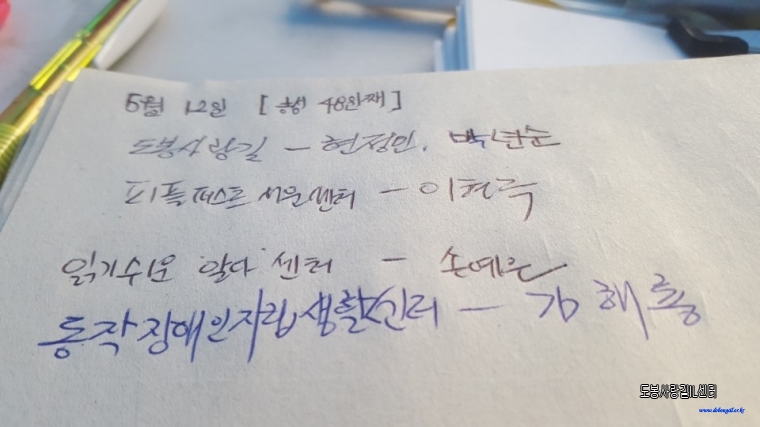 5월 12일 [ 행 48일째 ]
도봉사랑길 - 현정민, 박난순
피플퍼스트 서울센터 - 이현국
읽기쉬운 '알다' 센터 - 손예은
동작장애인자립생활센터 - 김해룡
도봉사랑길IL센터
www.dobongil.or.kr